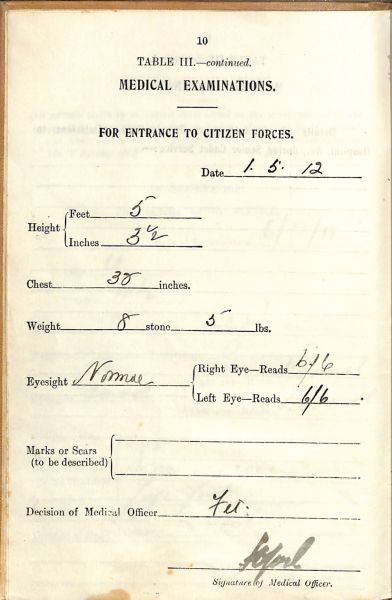 10
TABLE III.—continued.
MEDICAL EXAMINATIONS.
FOR ENTRANCE TO CITIZEN FORCES.
Date 1. 5. 12
Height { Feet 5
Inches 3½
Chest inches.
Weight 8 stone 5 lbs.
Eyesight Normal { Right Eye—Reads 6/6
Left Eye—Reads 6/6.
Marks or Scars
(to be described)
Decision of Medical Officer Fit.
Signature of Medical Officer.